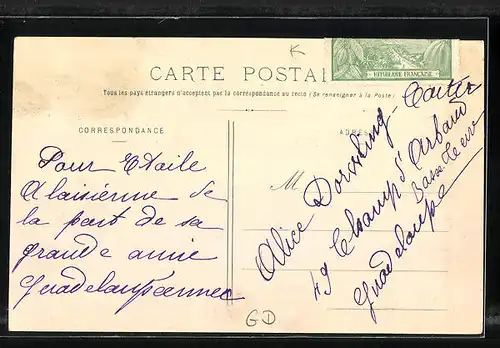 RÉPUBLIQUE FRANÇAISE
CARTE POSTA
Tous les pays étrangers n'acceptent pas la correspondance au recto (Se renseigner à la Poste)
CORRESPONDANCE
Pour Etoile
Alaisienne de
la part de sa
grande amie
Guadeloupéenne
ADRES
M
Alice Dorsling-Carter
49 Champ d'Arbaud
Basse Terre
Guadeloupe
GD